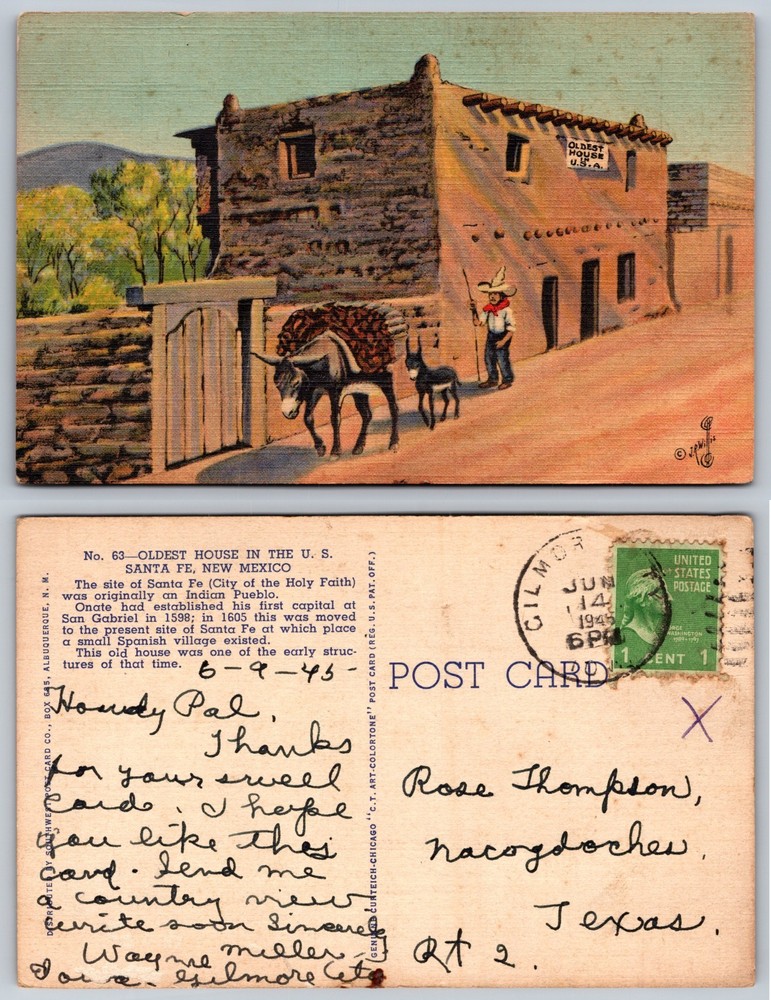 OLDEST
HOUSE
IN
U.S.A.
©
No. 63—OLDEST HOUSE IN THE U. S.
SANTA FE, NEW MEXICO
The site of Santa Fe (City of the Holy Faith)
was originally an Indian Pueblo.
Onate had established his first capital at
San Gabriel in 1598; in 1605 this was moved
to the present site of Santa Fe at which place
a small Spanish village existed.
This old house was one of the early struc-
tures of that time.
6-9-45-
Howdy Pal,
Thanks
for your swell
Cards. I hope
you like this
card. Send me
a country view
write soon Sincerely
Wayne Miller
Iowa. Gilmore City
DISTRIBUTED BY SOUTHWEST POST CARD CO., BOX 685, ALBUQUERQUE, N. M.
GENUINE CURTEICH-CHICAGO "C.T. ART-COLORTONE" POST CARD (REG. U.S. PAT. OFF.)
POST CARD
GILMOR
JUN
14
1945
6 PM
UNITED
STATES
POSTAGE
WASHINGTON
1 CENT 1
X
Rose Thompson,
Nacogdoches.
Texas.
Rt 2.